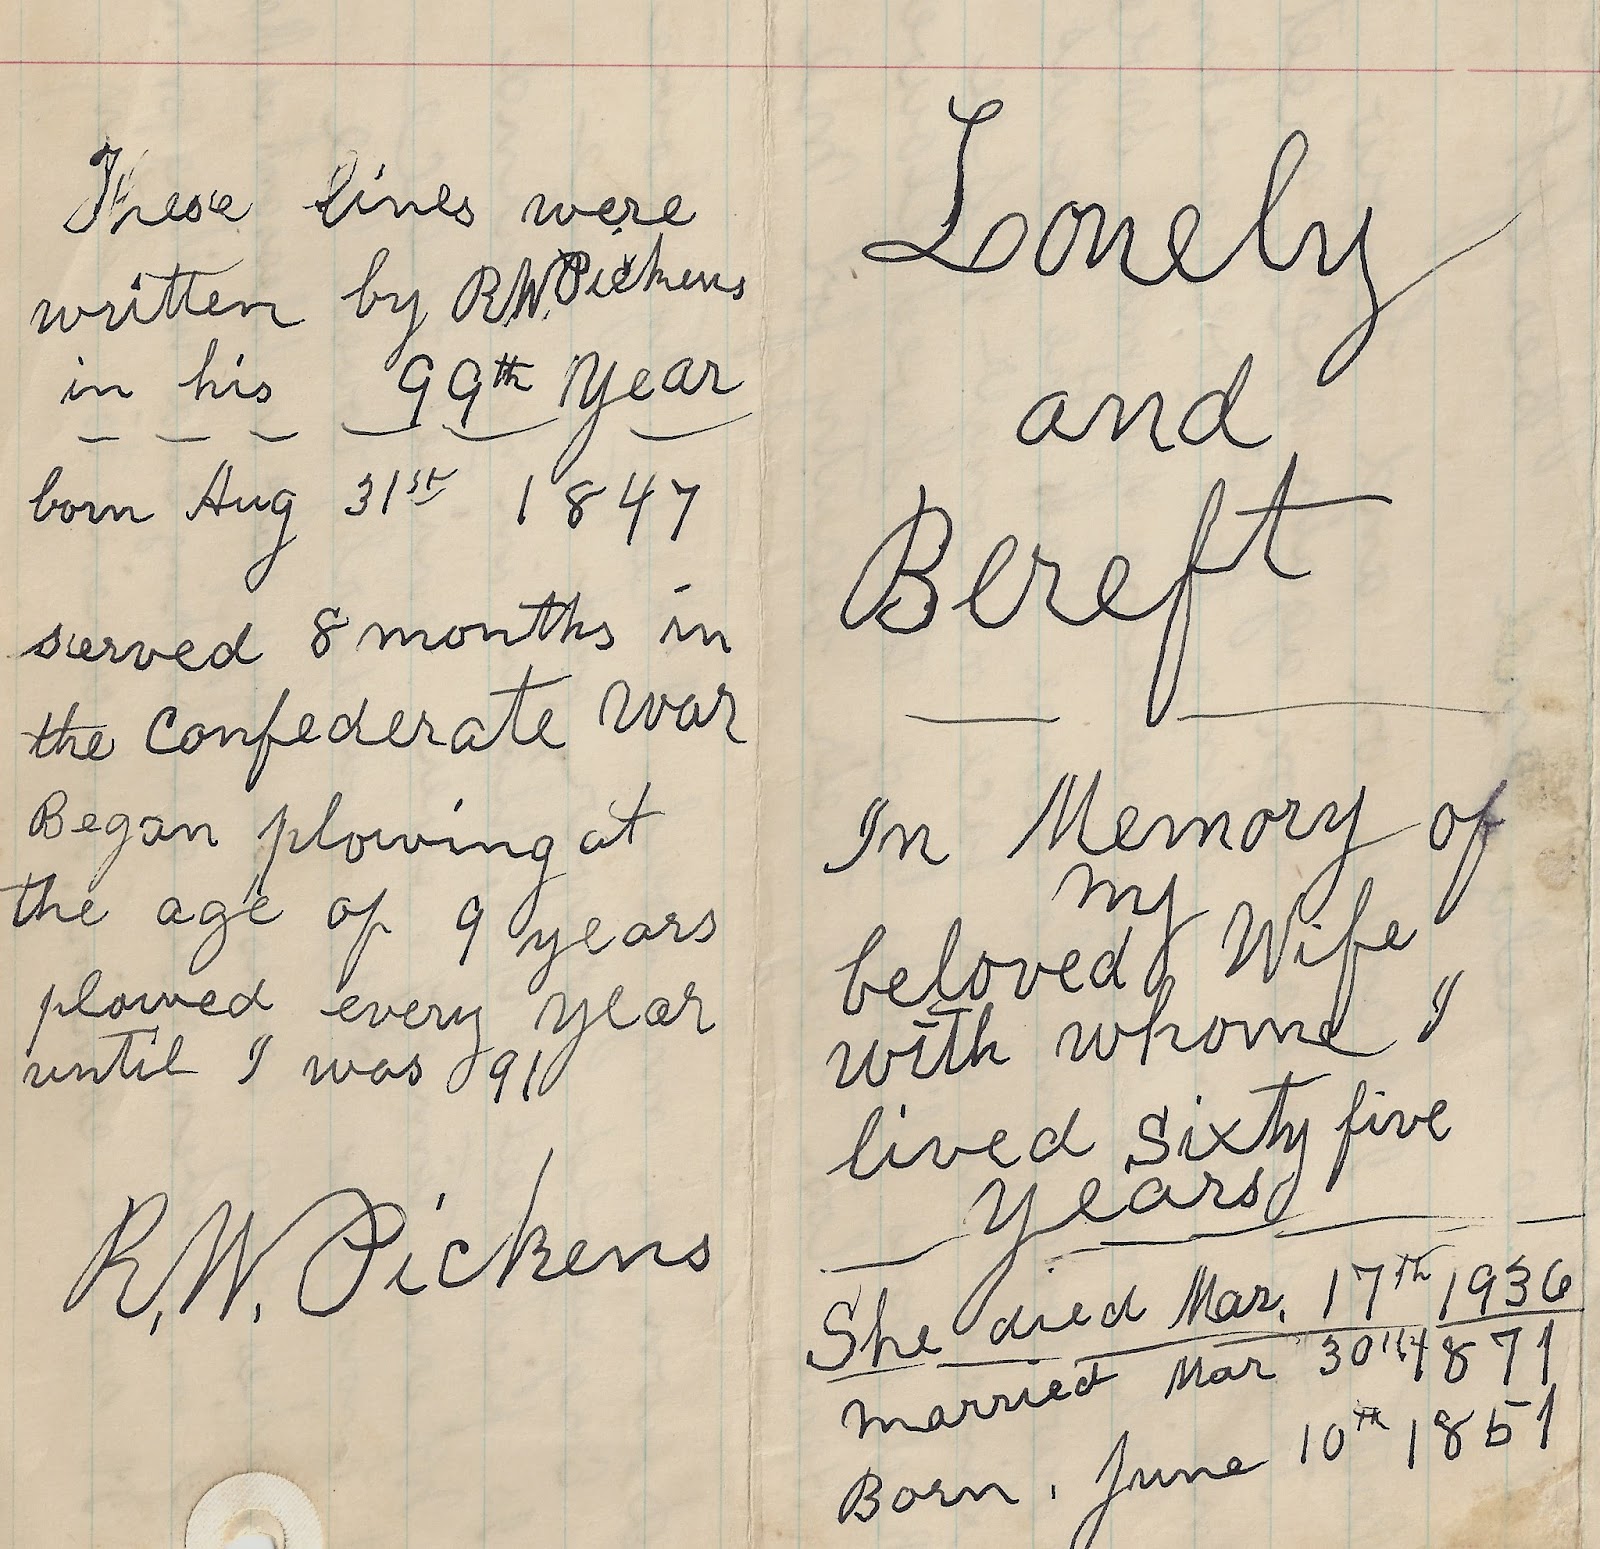 These lines were
written by R.W. Pickens
in his 99th Year
born Aug 31st 1847
served 8 months in
the Confederate War
Began plowing at
the age of 9 years
plowed every year
until I was 91
R.W. Pickens
Lonely
and
Bereft
In Memory of
my
beloved Wife
with whome I
lived Sixty five
years
She died Mar. 17th 1936
married Mar 30th 1871
Born, June 10th 1851